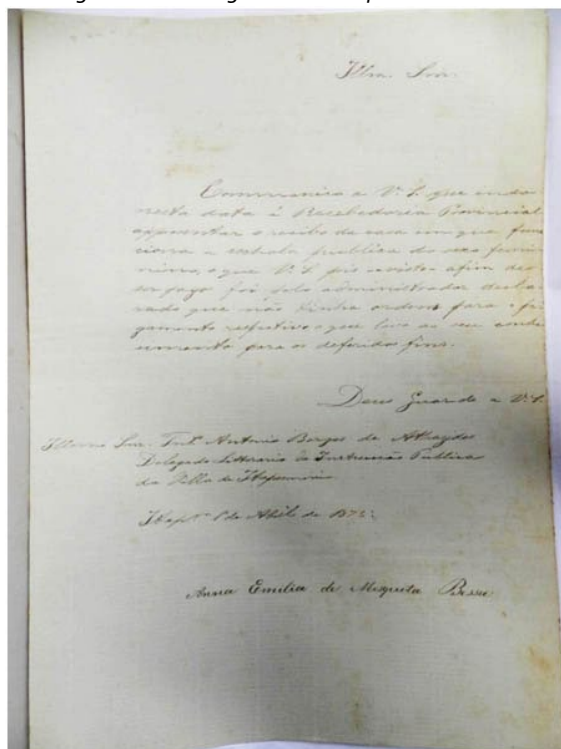 Illmo. Snr.
Communico a V.S. que indo
nesta data á Recebedoria Provincial
appresentar o recibo da casa em que func
ciona a eschola publica do sexo femi
nino, o que V.S. pôs o visto afim de
ser pago foi pelo administrador decla
rado que não tinha ordens para o pa
gamento respectivo o que levo ao seu conhe
cimento para os fins.
Deus Guarde a V.S.
Illmo Snr. Antonio Borges de Athaydes
Delegado Litterario da Instrucção Publica
da Villa de Itapemirim
de Abril de
Anna Emilia de Mesquita